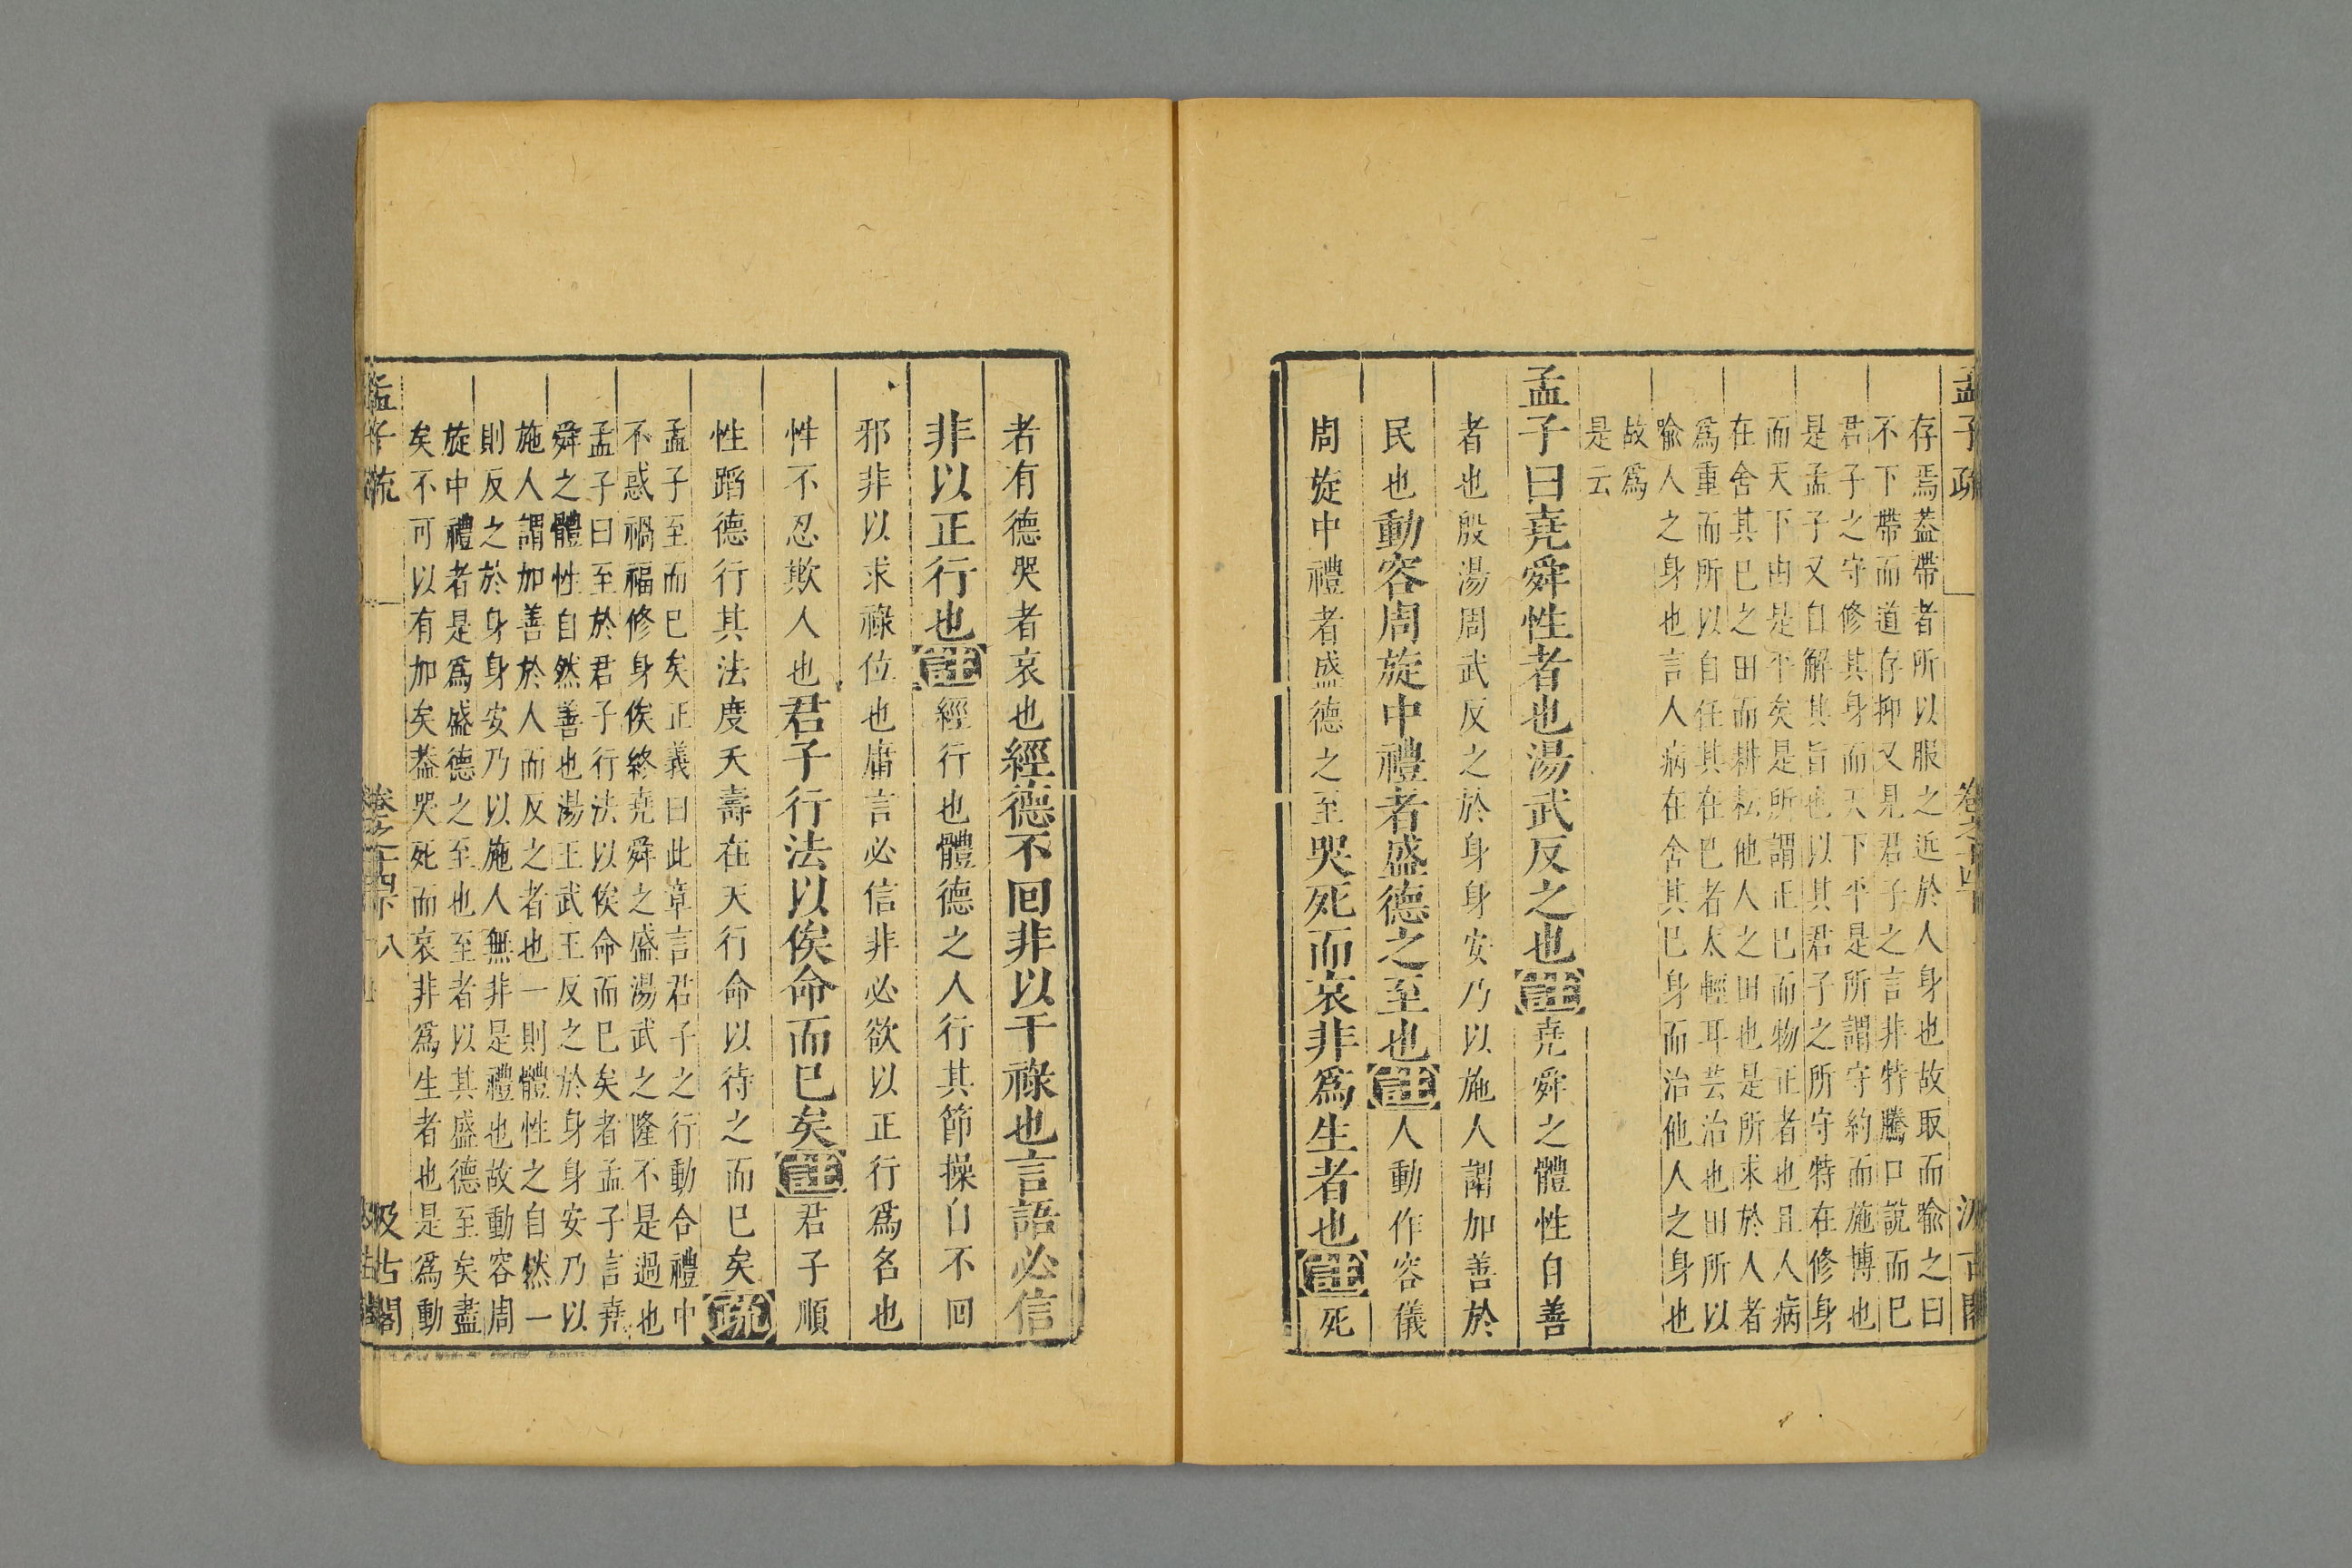 孟子疏 卷之十四下 汲古閣
存焉蓋帶者所以服之近於人身也故取而喻之曰
不下帶而道存抑又見君子之言非特騰口說而已
君子之守修其身而天下平是所謂守約而施博也
是孟子又自解其旨也以其君子之所守特在修身
而天下由是平矣是所謂正已而物正者也且人病
在舍其已之田而耕耘他人之田也是所求於人者
爲重而所以自任其在已者太輕耳芸治也田所以
喻人之身也言人病在舍其已身而治他人之身也
故爲
是云
孟子曰堯舜性者也湯武反之也註堯舜之體性自善
者也殷湯周武反之於身身安乃以施人謂加善於
民也動容周旋中禮者盛德之至也註人動作容儀
周旋中禮者盛德之至哭死而哀非爲生者也註死
者有德哭者哀也經德不回非以干祿也言語必信
非以正行也註經行也體德之人行其節操自不回
邪非以求祿位也庸言必信非必欲以正行爲名也
性不忍欺人也君子行法以俟命而已矣註君子順
性蹈德行其法度夭壽在天行命以待之而已矣疏
孟子至而已矣正義曰此章言君子之行動合禮中
不惑禍福修身俟終堯舜之盛湯武之隆不是過也
孟子曰至於君子行法以俟命而已矣者孟子言堯
舜之體性自然善也湯王武王反之於身身安乃以
施人謂加善於人而反之者也一則體性之自然一
則反之於身身安乃以施人無非是禮也故動容周
旋中禮者是爲盛德之至也至者以其盛德至矣盡
矣不可以有加矣蓋哭死而哀非爲生者也是爲動
孟子疏 卷之十四下 八 汲古閣